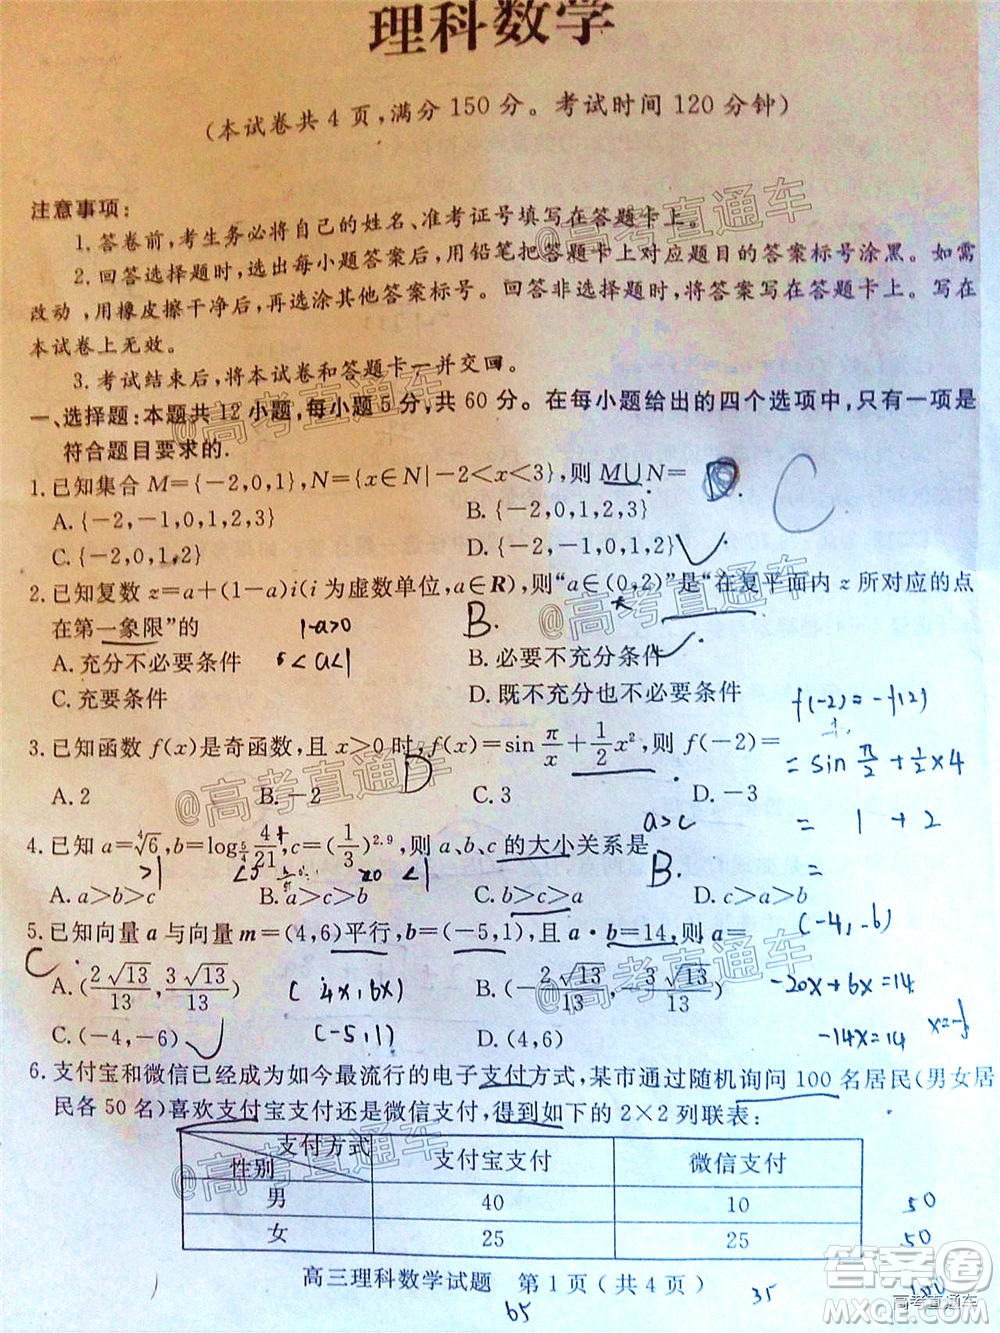 理科数学
(本试卷共4页,满分150分。考试时间120分钟)
注意事项:
1.答卷前,考生务必将自己的姓名、准考证号填写在答题卡上。
2.回答选择题时,选出每小题答案后,用铅笔把答题卡上对应题目的答案标号涂黑。如需
改动,用橡皮擦干净后,再选涂其他答案标号。回答非选择题时,将答案写在答题卡上。写在
本试卷上无效。
3.考试结束后,将本试卷和答题卡一并交回。
一、选择题:本题共12小题,每小题5分,共60分。在每小题给出的四个选项中,只有一项是
符合题目要求的.
1.已知集合M={-2,0,1},N={x∈N|-2<x<3},则M∪N= D. C
A.{-2,-1,0,1,2,3} B.{-2,0,1,2,3}
C.{-2,0,1,2} D.{-2,-1,0,1,2}
2.已知复数z=a+(1-a)i(i为虚数单位,a∈R),则“a∈(0,2)”是“在复平面内z所对应的点
在第一象限”的 1-a>0 B.
A.充分不必要条件 B.必要不充分条件
C.充要条件 D.既不充分也不必要条件
f(-2)=-f(2)
3.已知函数f(x)是奇函数,且x>0时,f(x)=sin π/x + 1/2 x²,则f(-2)= D
= sin π/2 + 1/2 × 4
A.2 B.-2 C.3 D.-3
a>c = 1 + 2
4.已知a=⁴√6,b=log_{5/4} 4/21,c=(1/3)^{2.9},则a、b、c的大小关系是 B.
>1 <0 >0 <1 =
A.a>b>c B.a>c>b C.b>c>a D.c>a>b
5.已知向量a与向量m=(4,6)平行,b=(-5,1),且a·b=14,则a= (-4,-6)
C.
A.(2√13/13, 3√13/13) B.(-2√13/13, -3√13/13)
(4x,6x) -20x+6x=14
C.(-4,-6) D.(4,6)
(-5,1) -14x=14
6.支付宝和微信已经成为如今最流行的电子支付方式,某市通过随机询问100名居民(男女居
民各50名)喜欢支付宝支付还是微信支付,得到如下的2×2列联表:
支付方式
性别 支付宝支付 微信支付
男 40 10 50
女 25 25 50
高三理科数学试题 第1页(共4页)
65 35 100
@高考直通车
@高考直通车
@高考直通车
@高考直通车
@高考直通车
@高考直通车
@高考直通车
答案圈
MXQE.COM
高考直通车